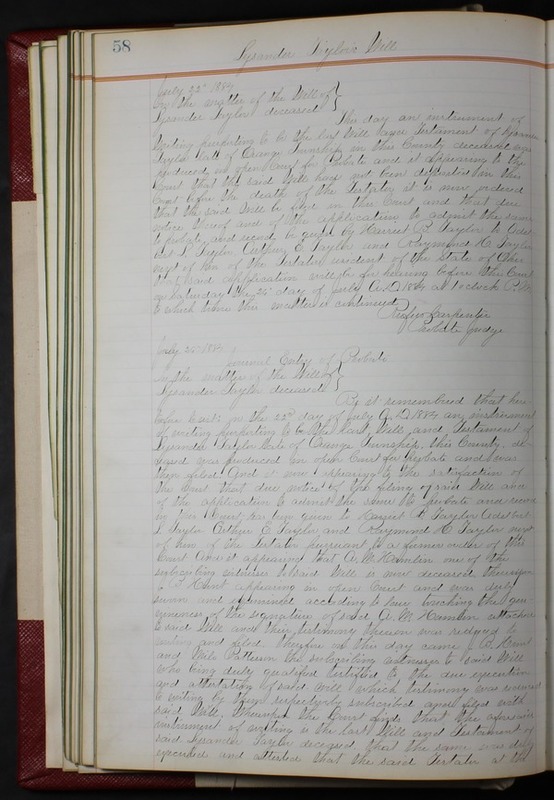 58
Lysander Taylor's Will
July 22" 1884
In the matter of the Will of
Lysander Taylor deceased
This day an instrument of
writing purporting to be the last Will and Testament of Lysander
Taylor late of Orange Township in this County deceased was
produced in open Court for Probate and it appearing to the
Court that the said Will has not been deposited in this
Court before the death of the Testator it is now ordered
that the said Will be filed in this Court and that due
notice thereof and of the application to admit the same
to probate and record be given by Harriet R. Taylor to Adel-
bert L. Taylor Arthur E. Taylor and Raymond H. Taylor
next of kin of the Testator resident of the State of Ohio
that said application will be for hearing before this Court
on Saturday the day of July A.D. 1884 at 1 o'clock P.M.
to which time this matter is continued.
Rufus Carpenter
Probate Judge
July 1884
Journal Entry of Probate
In the matter of the Will of
Lysander Taylor deceased
Be it remembered that here-
tofore towit: on the 22" day of July A.D. 1884 an instrument
of writing purporting to be the last Will and Testament of
Lysander Taylor late of Orange Township, this County, de-
ceased was produced in open Court for probate and was
then filed. And it now appearing to the satisfaction of
the Court that due notice of the filing of said Will and
of the application to admit the same to probate and record
in this Court has been given to Harriet R. Taylor Adelbert
L. Taylor Arthur E. Taylor and Raymond H. Taylor next
of kin of the Testator pursuant to a former order of this
Court. And it appearing that A. W. Hamlin one of the
subscribing witnesses to said Will is now deceased thereupon
appearing in open Court and was duly
sworn and examined according to law touching the gen-
uineness of the signature of said A. W. Hamlin attached
to said Will and their testimony thereon was reduced to
writing and filed. Therefore on this day came
and Patterson the subscribing witnesses to said Will
who being duly qualified testified to the due execution
and attestation of said Will which testimony was reduced
to writing by them respectively subscribed and filed with
said Will. Whereupon the Court finds that the aforesaid
instrument of writing is the last Will and Testament of
said Lysander Taylor deceased, that the same was duly
executed and attested that the said Testator at the